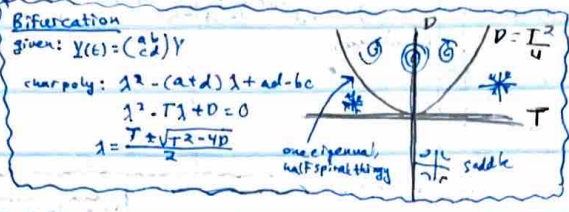 Bifurcation
given: Y(t) = (a b
c d) Y
char poly: λ² - (a+d) λ + ad-bc
λ² - Tλ + D = 0
λ = T ± √T² - 4D
2
D
D = T²
4
T
one eigenval,
half spiral thingy
saddle